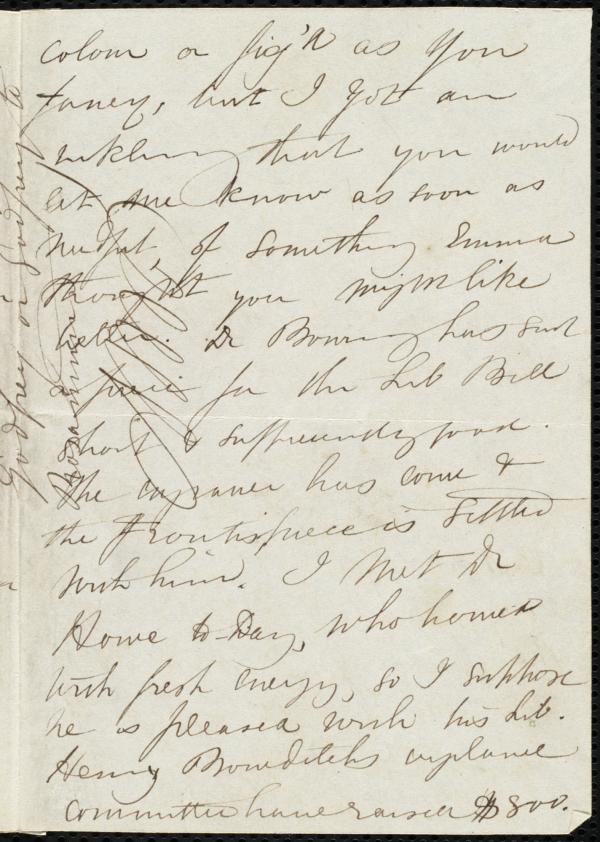 colour or fig'd as you
fancy, but I got an
inkling that you would
let me know as soon as
needful, of something Emma
thought you might like
better. Dr Bowring has sent
a piece for the Lib Bell
short & sufficiently good.
The engraver has come &
the Frontispiece is settled
with him. I met Dr
Howe to-Day, who
with fresh energy, so I suppose
he is pleased with his Lib.
Henry Bowditch's vigilance
committee have raised $800.
Godfrey or Godfrey to